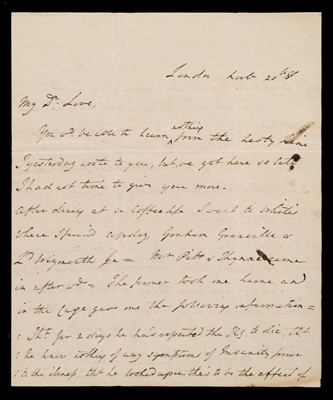 London
My Dr. Love,
You wd. be able to learn nothing from the hasty line
I yesterday wrote to you, but we got here so late
I had not time to give you more.
After dining at a Coffee I went to White's
where I found Graham Granville &
Ld. Weymouth &c = Mr. Pitt & came
in after wds = The former took me home and
in the gave me the following information =
: Tht. for 2 days he had expected the Kg to die, tht
: he knew nothing of any symptoms of Insanity prior
: to the illness, tht he looked upon this to be the effect of